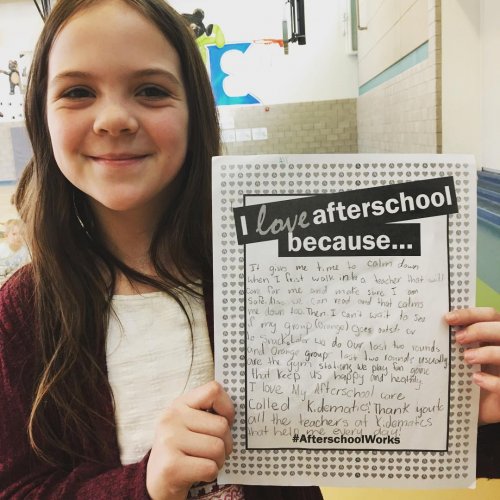 I love afterschool
because...
It gives me time to calm down
when I first walk in to a teacher that will
care for me and make sure I am
safe. Also we can read and that calms
me down too. Then I can't wait to see
if my group (Orange) goes outside or
to Snack. Later we do our last two rounds
and Orange groups last two rounds usually
are the gym stations we play fun game
that keep us happy and healthy.
I love My Afterschool care
Called Kidematics! Thank you to
all the teachers of Kidematics
that help me every day!
#AfterschoolWorks